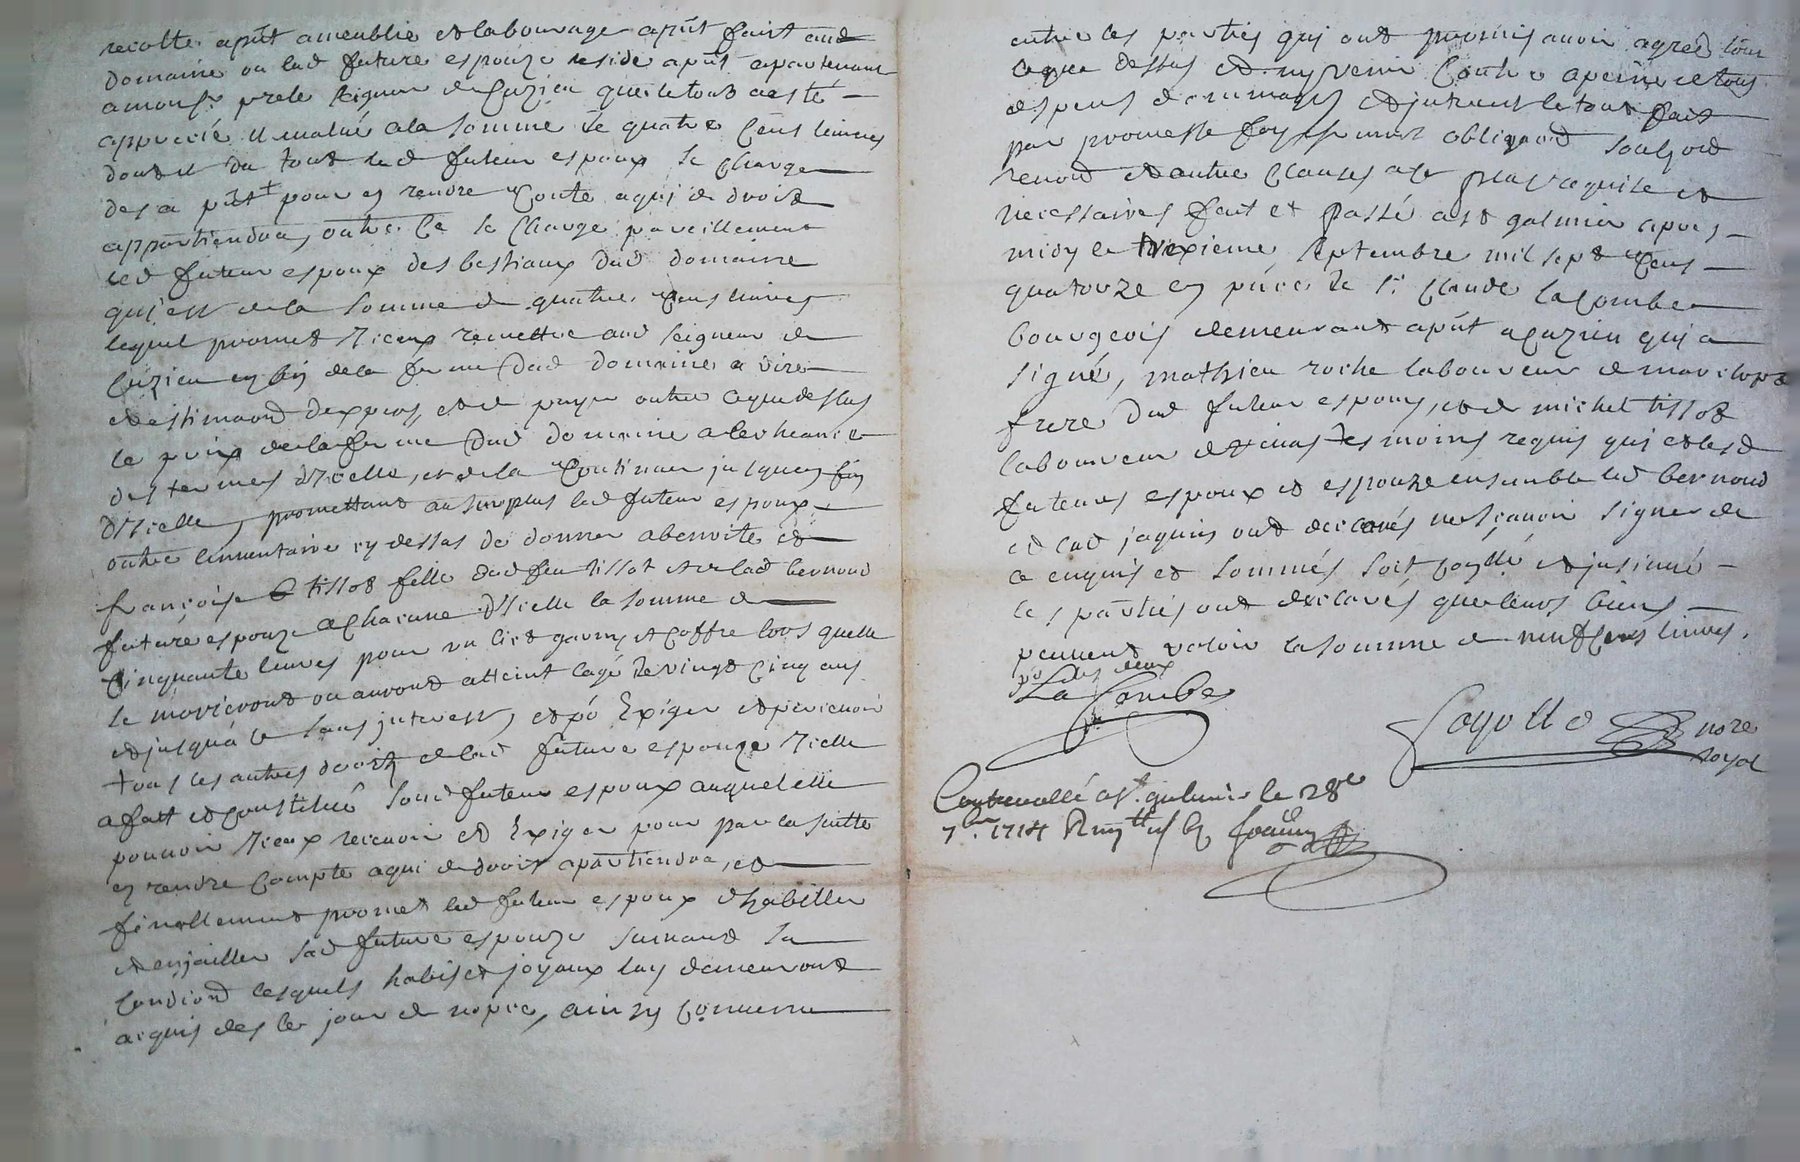 recolte apñt ameublie et labourage apñt faict aud
domaine ou lad future espouze reside apñt apartenant
a mons.r le seigneur de Cuzieu que le tout a esté
apprecié et evalué a la somme de quatre cens livres
dont et du tout led futeur espoux se charge
des a pñt pour en rendre conte a qui de droict
appartiendra, outre ce se charge pareillement
led futeur espoux des bestiaux dud domaine
qui est de la somme de quatre cens livres
lequel promet iceux remettre aud seigneur de
Cuzieu en fin de la ferme dud domaine a dire
et estimaõn dexpers, et de payer outre a que dessus
le prix de la ferme dud domaine a lescheance
des termes dicelle, et de la continuer jusques fin
dicelle, promettant au surplus led futeur espoux
outre linventaire cy dessus de donner a benoite et
françoise tissot fille dud feu tissot et de lad bernoud
future espouze a chacune dicelle la somme de
cinquante livres pour un lict garny et coffre lors quelle
se marieront ou auront atteint lagé de vingt cinq ans
et jusqua ce sans interest, et põ exiger et percevoir
tous les autres droits de lad future espouze icelle
a fait et constitué sond futeur espoux auquel elle
pouvoir iceux recevoir et exiger pour par la suitte
en rendre compte a qui de droit apartiendra, et
finallement promet led futeur espoux dhabiller
et enjoailler sad future espouze suivant sa
condiõnd lesquels habis et joyaux luy demeuront
acquis des le jour de nopce, ainsy convenu
entre les parties qui ont promis avoir agreé tout
ce que dessus et ny venir contre a peine de tous
despens dommages et interest le tout fait
par promesse foy serment obligaõn soubz
renonõ et autre clauses a ce plus requise et
necessaires fait et passé a st galmier apres
midy le treizieme septembre mil sept cens
quatorze en pñce de s.r Claude Lacombe
bourgeois demeurant apñt a Cuzieu qui a
signé, mathieu roche laboureur de marclopt
frere dud futeur espoux, et de michel tissot
laboureur tesmoins requis qui et lesd
futeurs espoux et espouze ensemble led bernoud
et lad jaquins ont declarés ne sçavoir signer de
ce enquis et sommés soit coppie et insinué
les parties ont declarés que leurs biens
peuvent valoir la somme de neuf cens livres.
La Combe
nore
royal
Controllé a s.t galmier le 28e
7.bre 1714